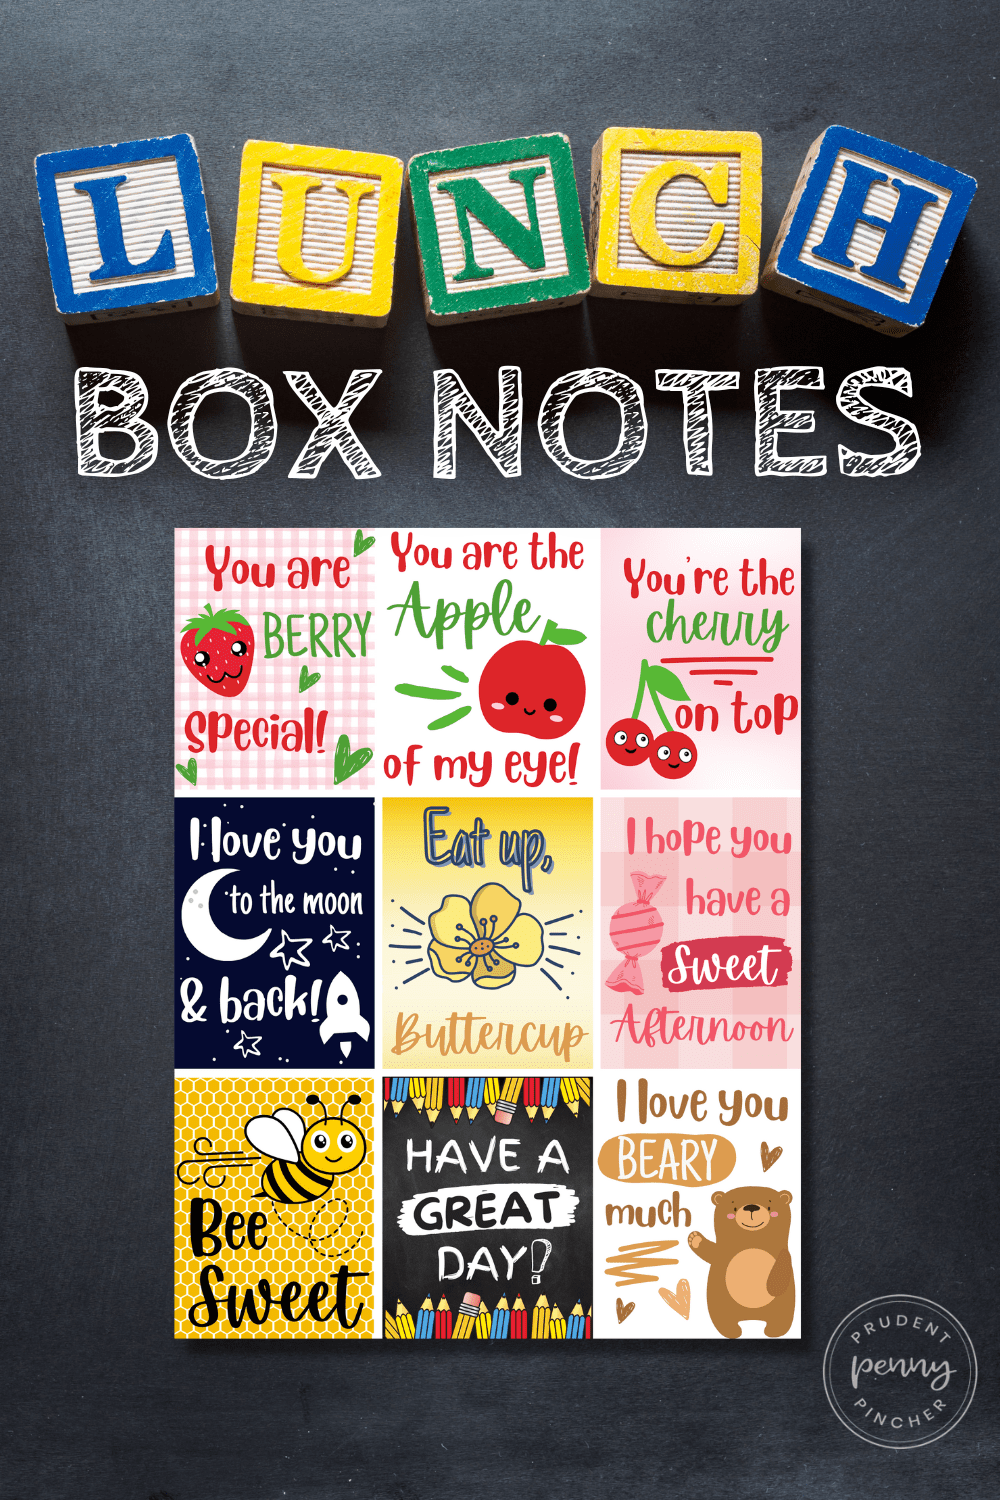 LUNCH
BOX NOTES
You are
BERRY
special!
You are the
Apple
of my eye!
You're the
cherry
on top
I love you
to the moon
& back!
Eat up,
Buttercup
I hope you
have a
Sweet
Afternoon
Bee
Sweet
HAVE A
GREAT
DAY!
I love you
BEARY
much
PRUDENT
penny
PINCHER